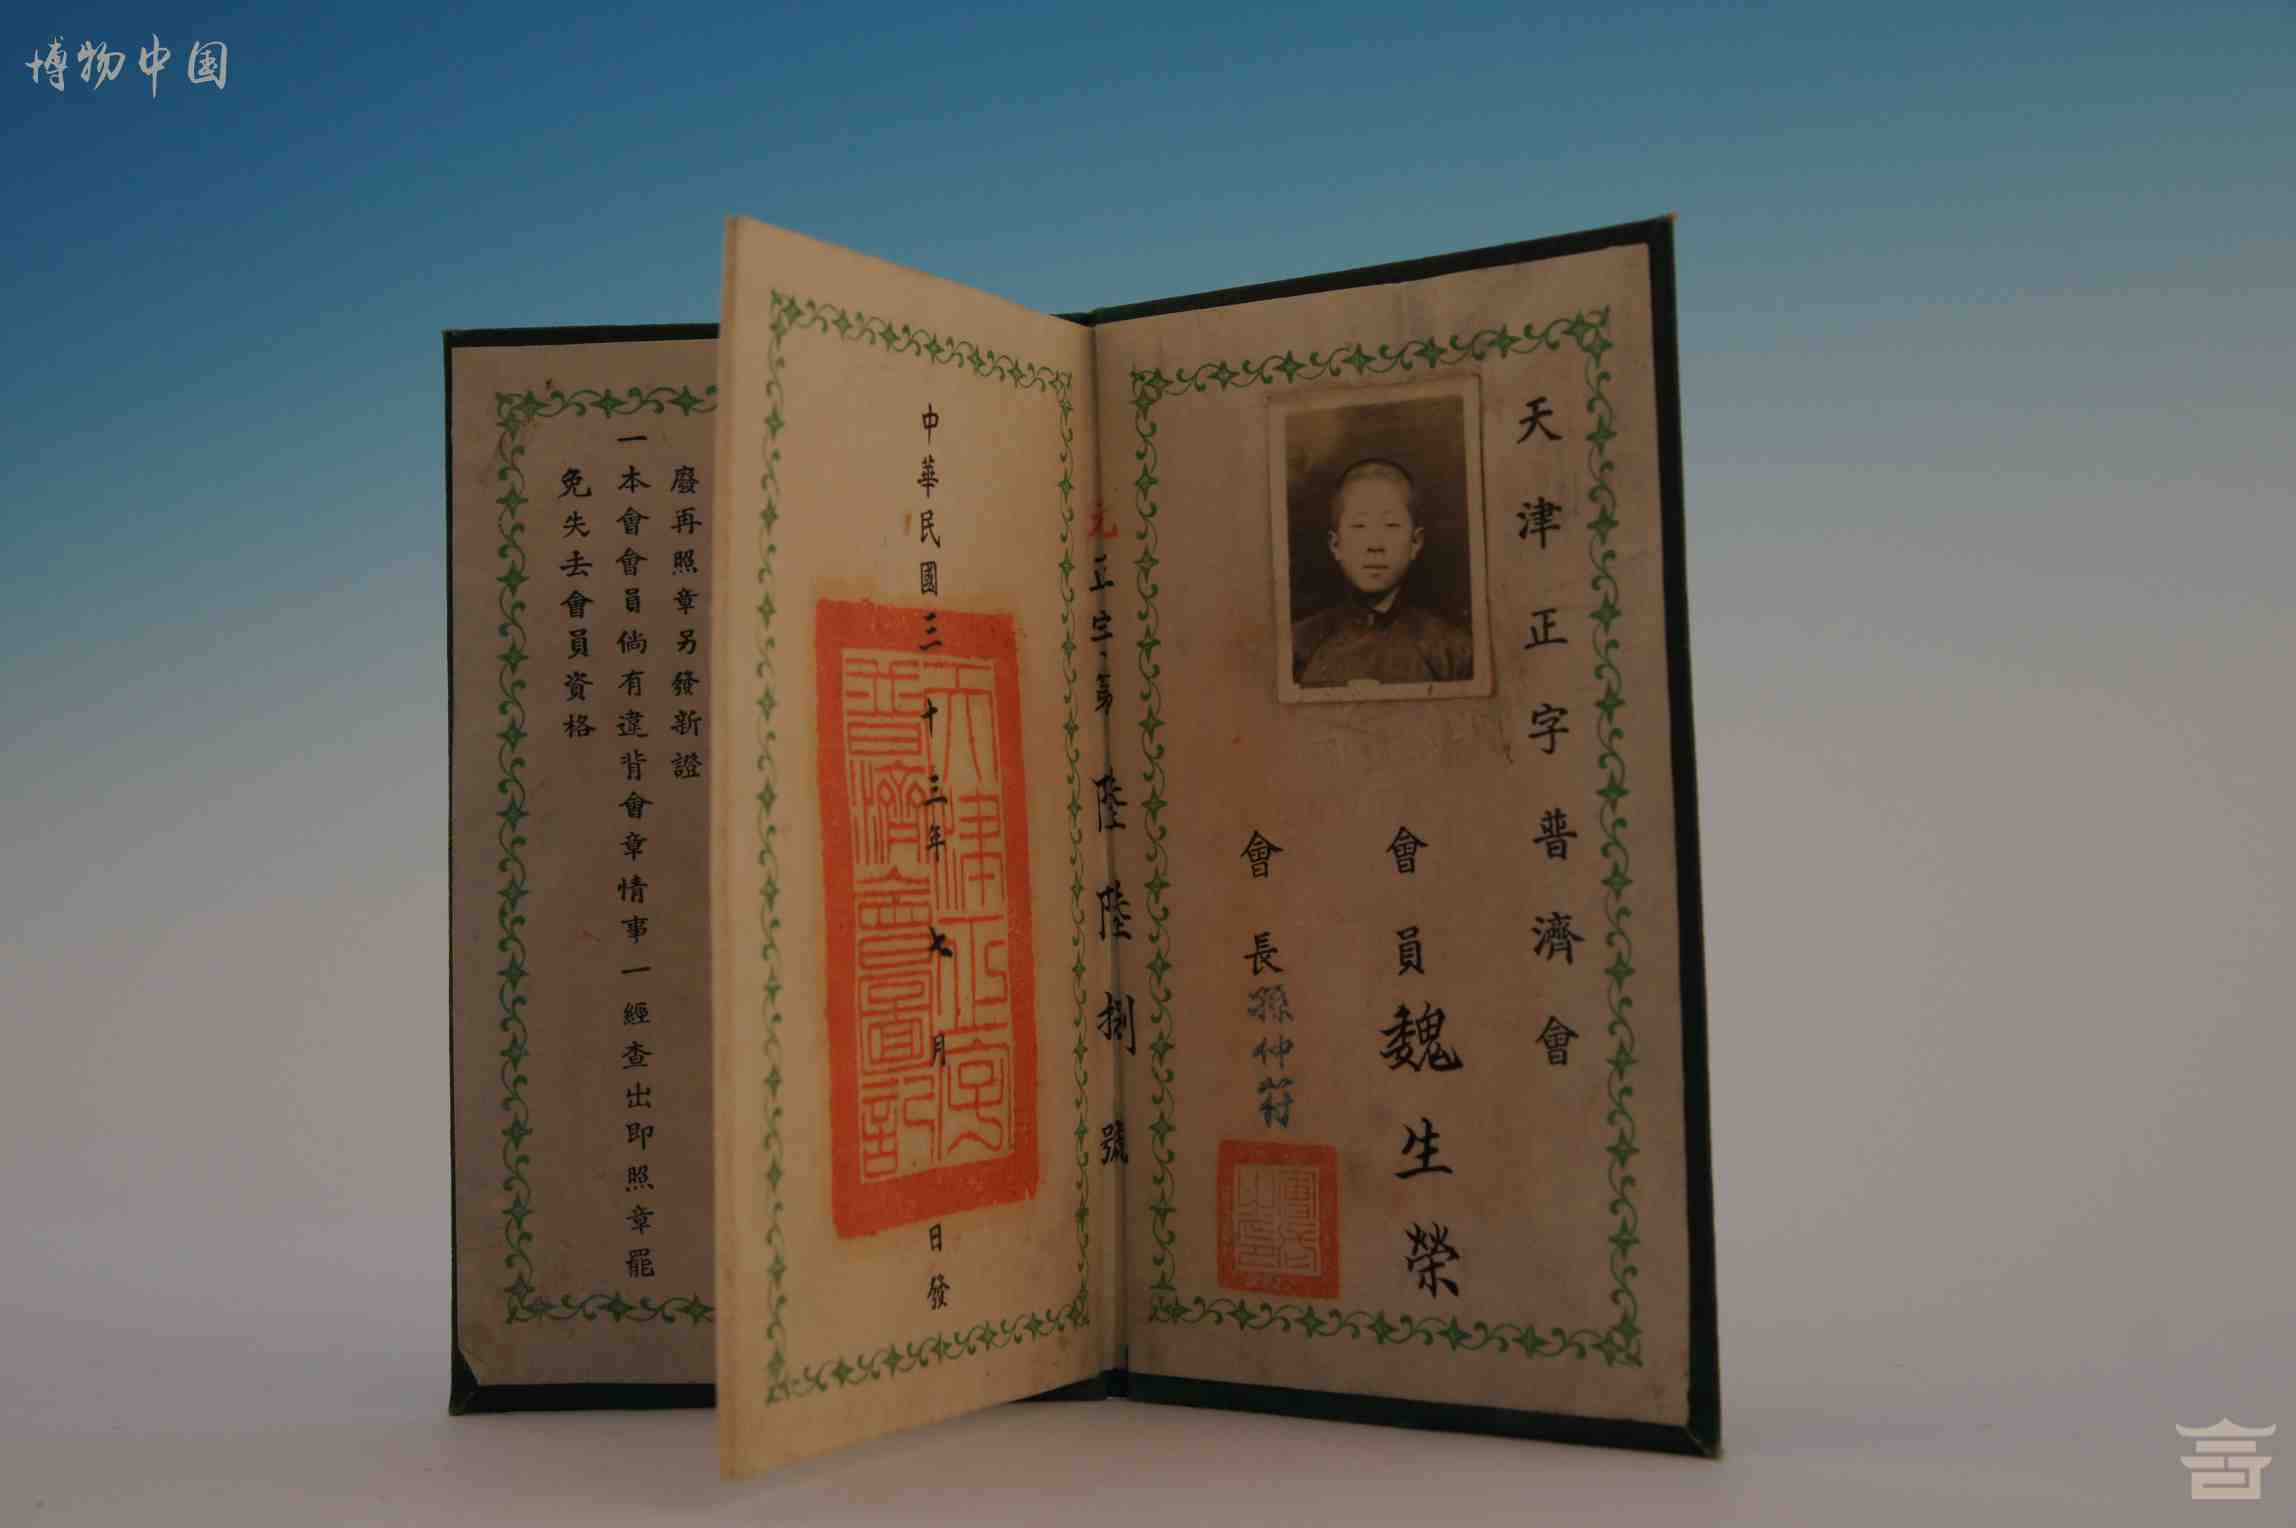 博物中国
天津正字普濟會
會員魏生榮
會長孫仲符
元正字第陸陸捌號
中華民國三十三年七月日發
天津正字
普濟會圖記
廢再照章另發新證
一本會會員倘有違背會章情事一經查出即照章罷
免失去會員資格